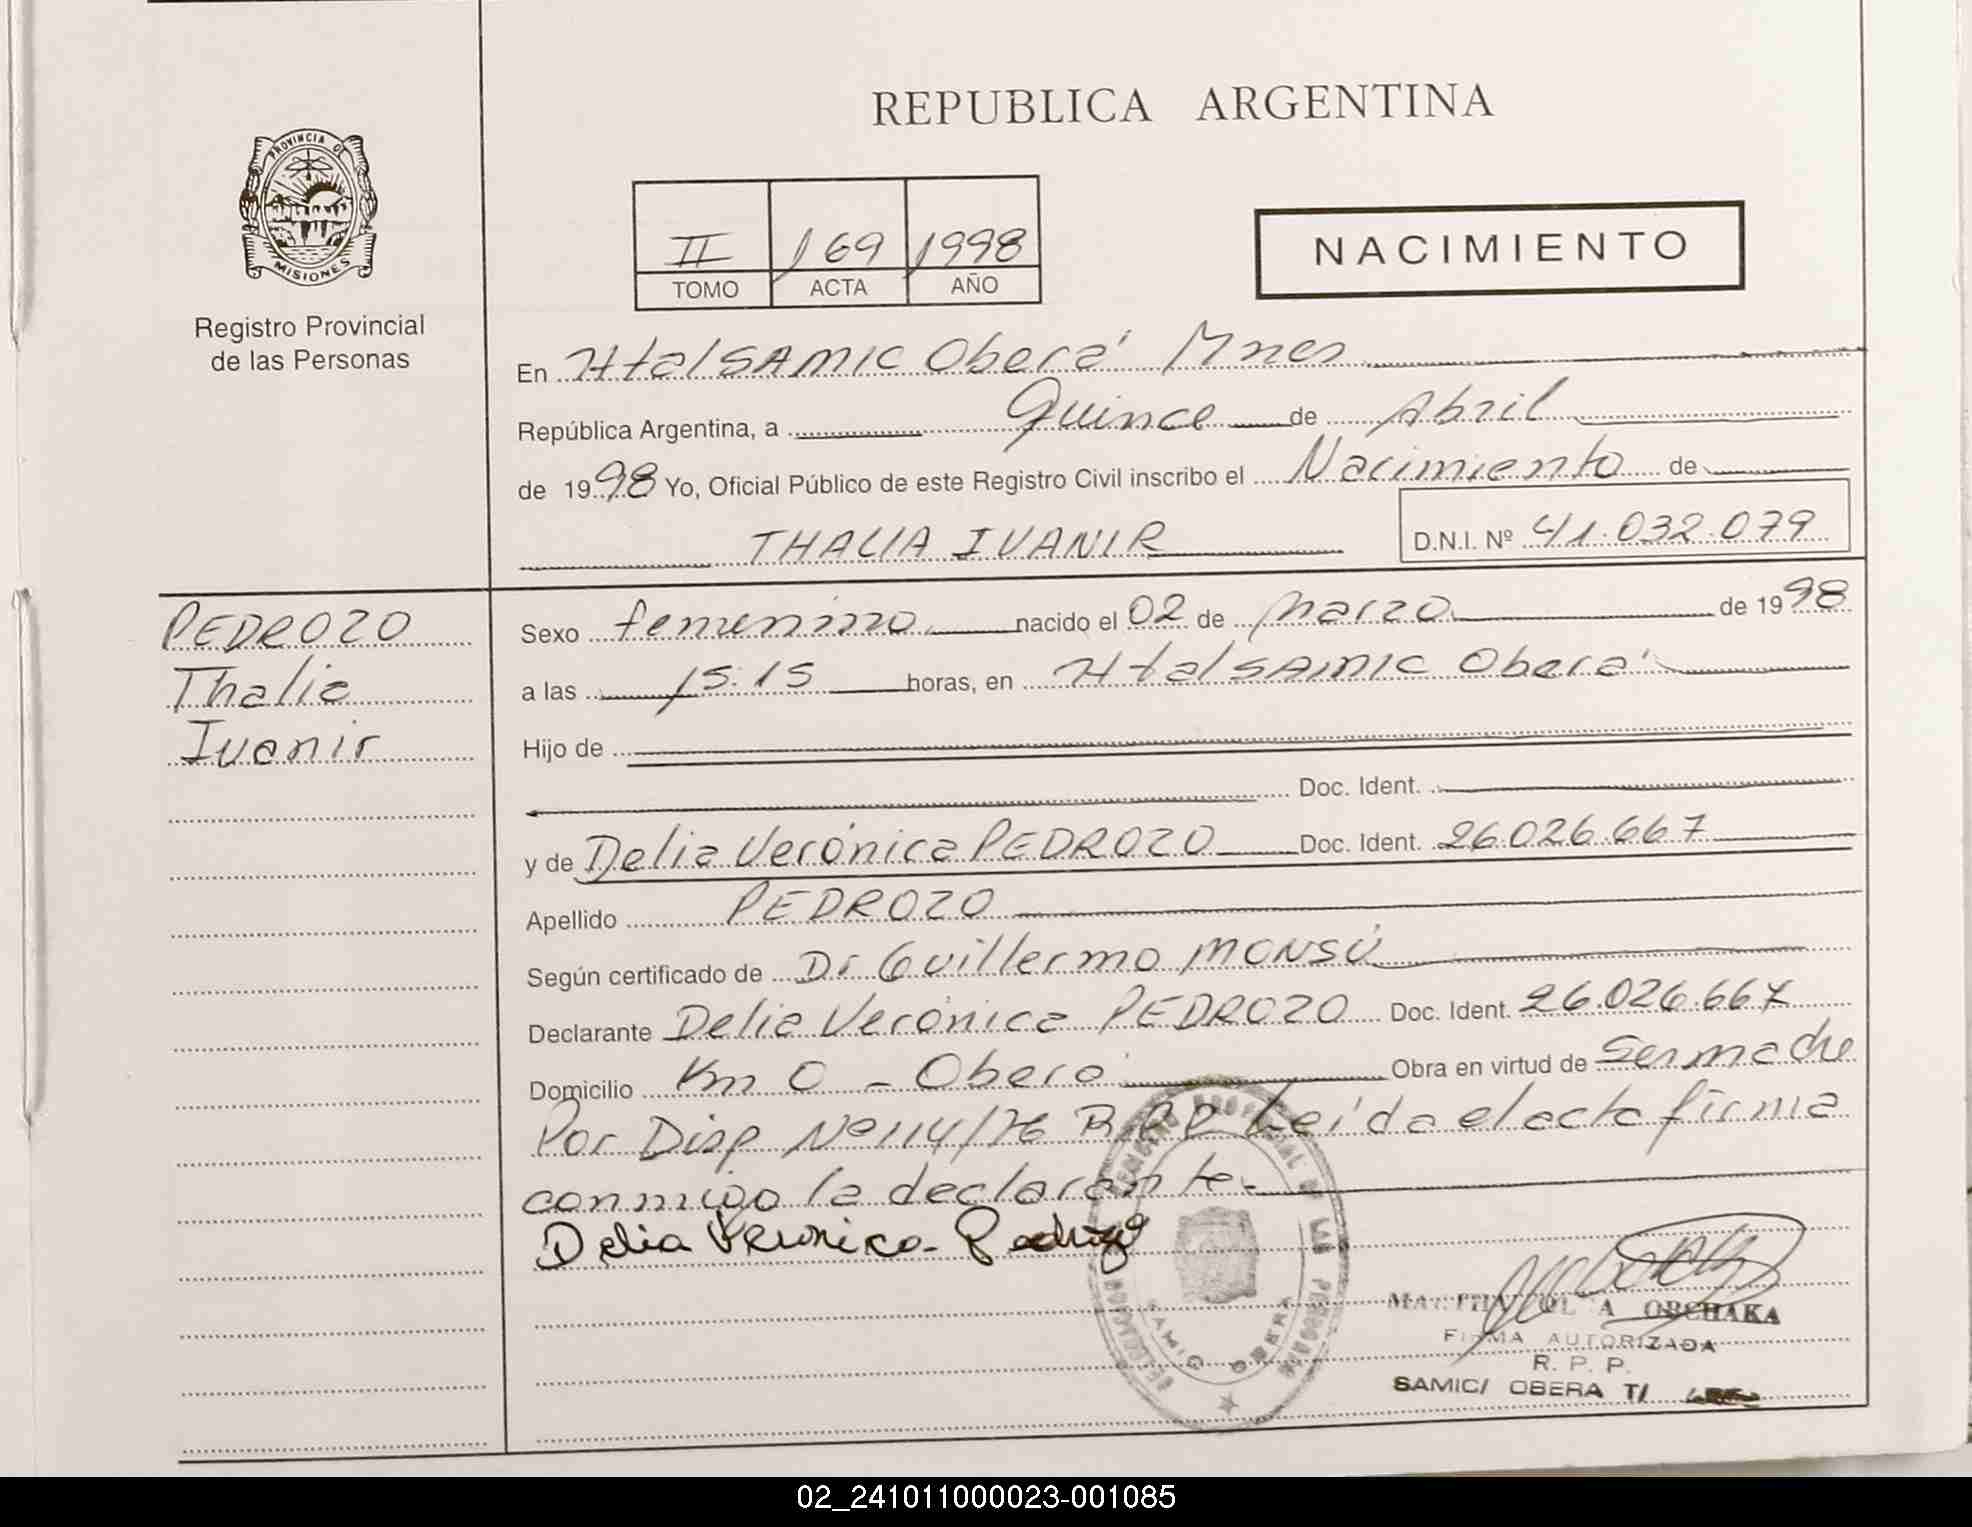 PROVINCIA DE
MISIONES
Registro Provincial
de las Personas
REPUBLICA ARGENTINA
II 169 1998
TOMO ACTA AÑO
NACIMIENTO
En Htal SAMIC Oberá Mnes
República Argentina, a Quince de Abril
de 1998 Yo, Oficial Público de este Registro Civil inscribo el Nacimiento de
THALIA IVANIR D.N.I. Nº 41.032.079
PEDROZO
Thalia
Ivanir
Sexo femenino nacido el 02 de Marzo de 1998
a las 15:15 horas, en Htal SAMIC Oberá
Hijo de
Doc. Ident.
y de Delia Verónica PEDROZO Doc. Ident. 26.026.667
Apellido PEDROZO
Según certificado de Dr Guillermo MONSÚ
Declarante Delia Verónica PEDROZO Doc. Ident. 26.026.667
Domicilio Km 0 - Oberá Obra en virtud de Ser madre
Por Disp Nº 114/76 R.P.P Leída el acta firma
conmigo la declarante.
Delia Veronica Pedrozo
REGISTRO PROVINCIAL DE LAS PERSONAS
DELEGACION
SAMIC
OBERA
ORCHAKA
FIRMA AUTORIZADA
R. P. P.
SAMIC/ OBERA T/
02_241011000023-001085